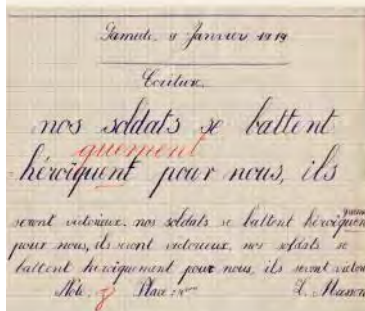 Samedi, 9 Janvier 1919
Ecriture.
nos soldats se battent
quement
héroiquent pour nous, ils
seront victorieux. nos soldats se battent héroiquem
pour nous, ils seront victorieux, nos soldats se
battent héroiquement pour nous, ils seront victori
Note, 8 Place :
L. Masson